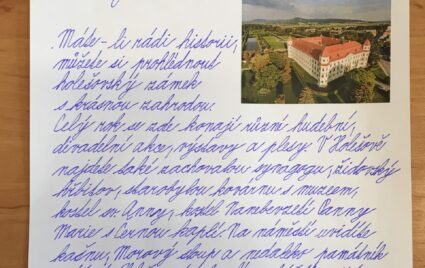 Máte-li rádi historii,
můžete si prohlédnout
holešovský zámek
s krásnou zahrodou.
Celý rok se zde konají různé hudební,
divadelní akce, výstavy a plesy. V Holešově
najdete také zachovalou synagogu, židovský
hřbitov, starobylou kovárnu s muzeem,
kostel sv. Anny, kostel Nanebevzetí Panny
Marie s Černou kaplí. Na náměstí uvidíte
kašnu, Morový sloup a nedaleko památník